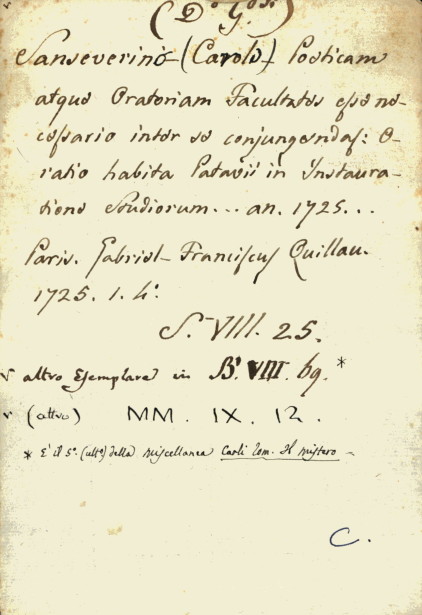 (Do. G...)
Sanseverino (Carolo) Poeticam
atque Oratoriam Facultates esse ne-
cessario inter se conjungendas: O-
ratio habita Patavii in Instaura-
tione Studiorum... an. 1725...
Paris. Gabriel Franciscus Quillau.
1725. 1. 4º.
S. VIII. 25.
√ altro Esemplare in B. VIII. 69. *
√ (altro) MM. IX. 12.
* E' il 5º. (ultº.) della Miscellanea Carli Tom. Il Mistero
C.